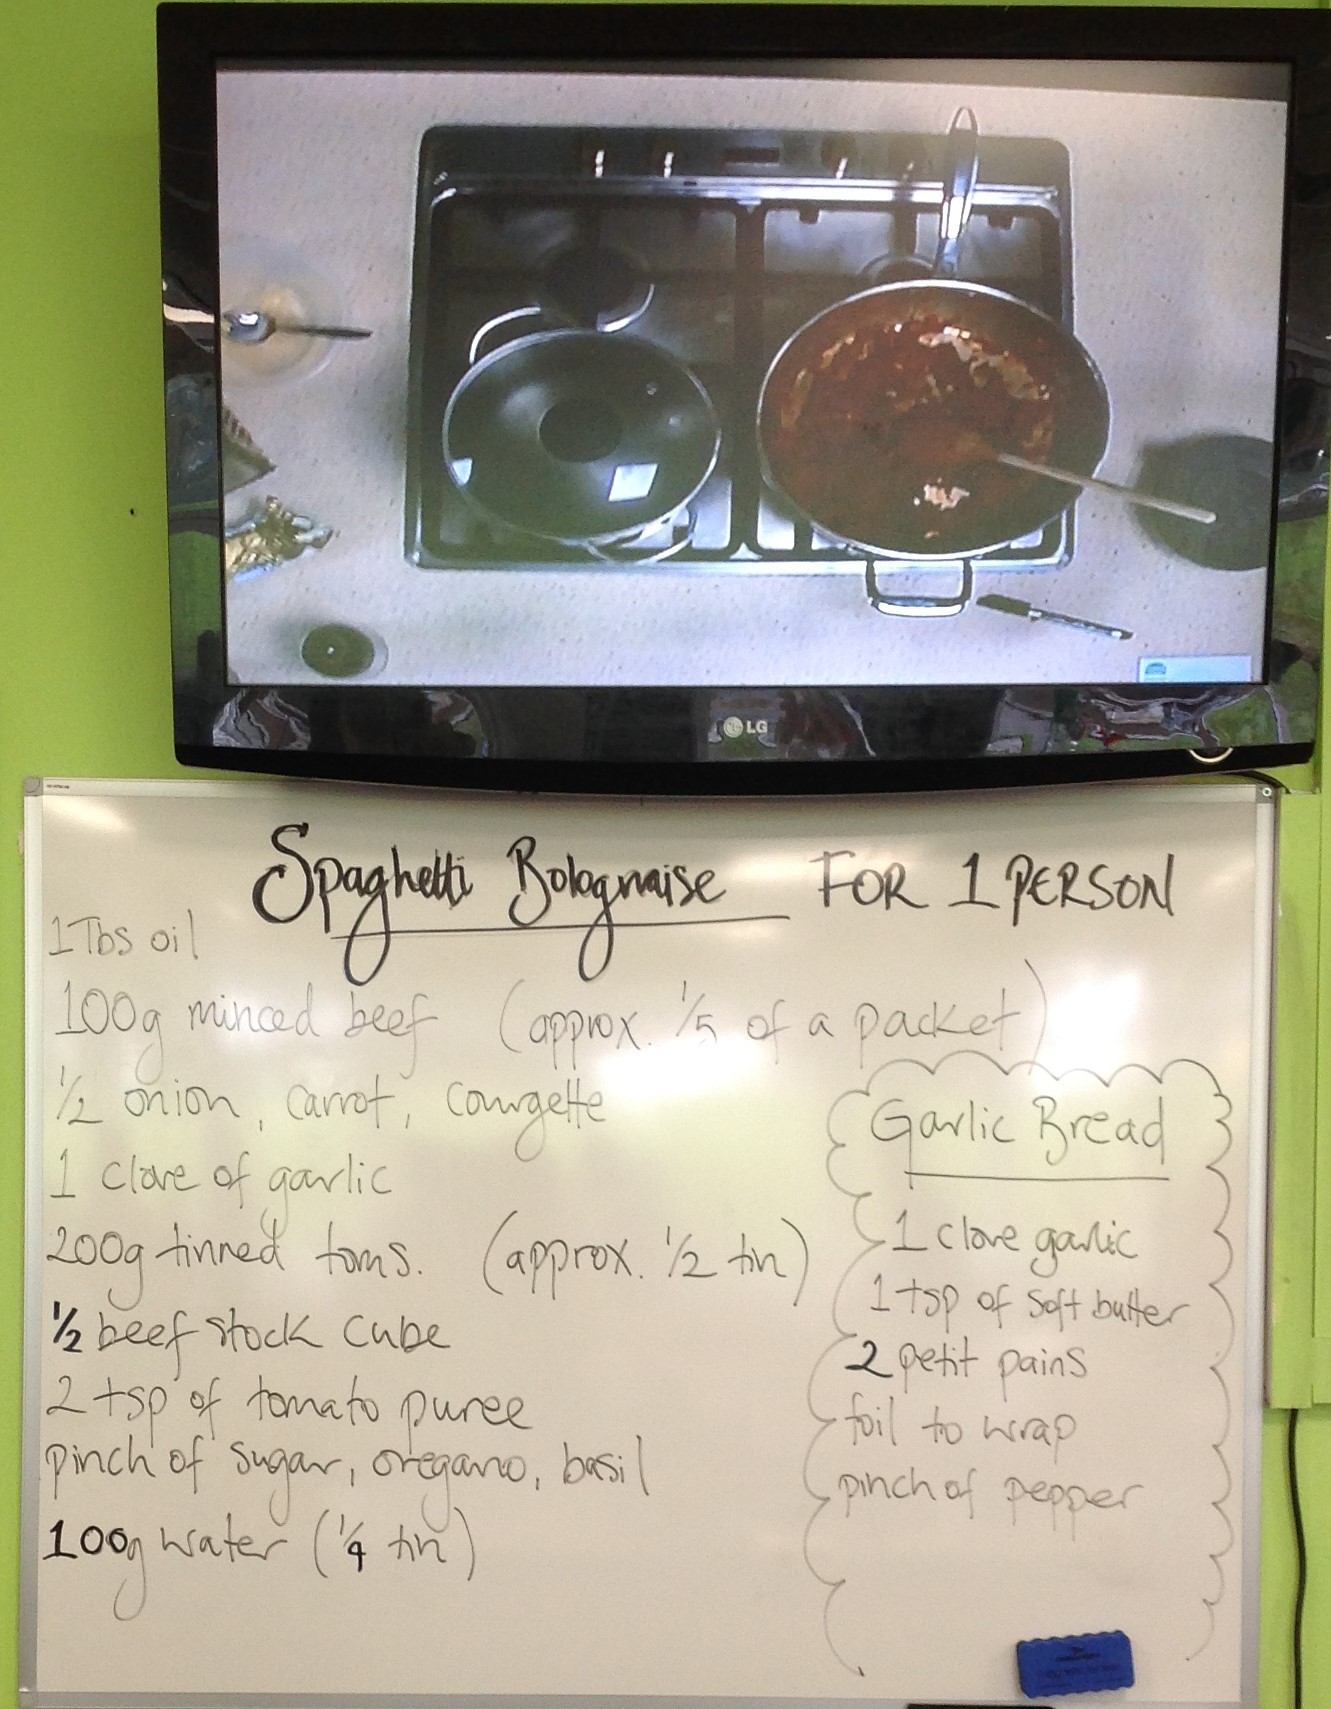 LG
Spaghetti Bolognaise FOR 1 PERSON
1 Tbs oil
100g minced beef (approx. 1/5 of a packet)
1/2 onion, carrot, courgette
1 clove of garlic
200g tinned toms. (approx. 1/2 tin)
1/2 beef stock cube
2 tsp of tomato puree
pinch of sugar, oregano, basil
100g water (1/4 tin)
Garlic Bread
1 clove garlic
1 tsp of soft butter
2 petit pains
foil to wrap
pinch of pepper